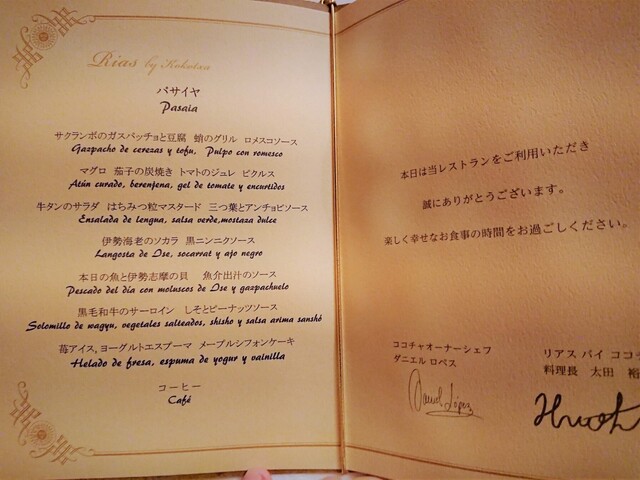 Rias by Kokotxa
パサイヤ
Pasaia
サクランボのガスパッチョと豆腐 蛸のグリル ロメスコソース
Gazpacho de cerezas y tofu, Pulpo con romesco
マグロ 茄子の炭焼き トマトのジュレ ピクルス
Atún curado, berenjena, gel de tomate y encurtidos
牛タンのサラダ はちみつ粒マスタード 三つ葉とアンチョビソース
Ensalada de lengua, salsa verde,mostaza dulce
伊勢海老のソカラ 黒ニンニクソース
Langosta de Ise, socarrat y ajo negro
本日の魚と伊勢志摩の貝 魚介出汁のソース
Pescado del día con moluscos de Ise y gazpachuelo
黒毛和牛のサーロイン しそとピーナッツソース
Solomillo de wagyu, vegetales salteados, shisho y salsa arima sanshó
苺アイス,ヨーグルトエスプーマ メープルシフォンケーキ
Helado de fresa, espuma de yogur y vainilla
コーヒー
Café
本日は当レストランをご利用いただき
誠にありがとうございます。
楽しく幸せなお食事の時間をお過ごしください。
ココチャオーナーシェフ
ダニエル ロペス
リアス バイ ココチ
料理長 太田 裕